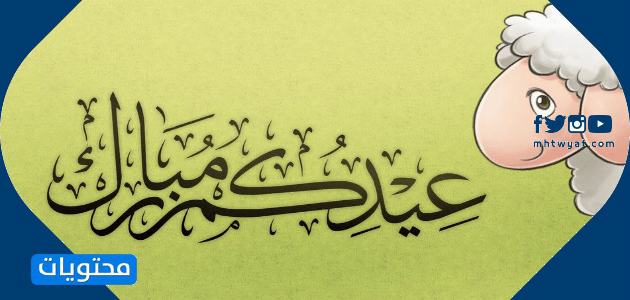 عيدكم مبارك
mhtwyat.com
محتويات